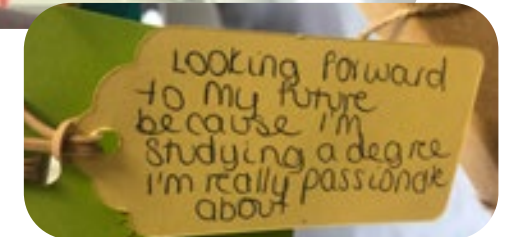 Looking forward
to my future
because I'm
studying a degree
I'm really passionate
about